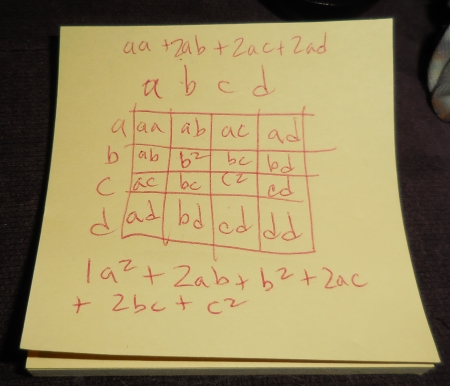 aa + 2ab + 2ac + 2ad
a b c d
a aa ab ac ad
b ab b² bc bd
c ac bc c² cd
d ad bd cd dd
1a² + 2ab + b² + 2ac
+ 2bc + c²